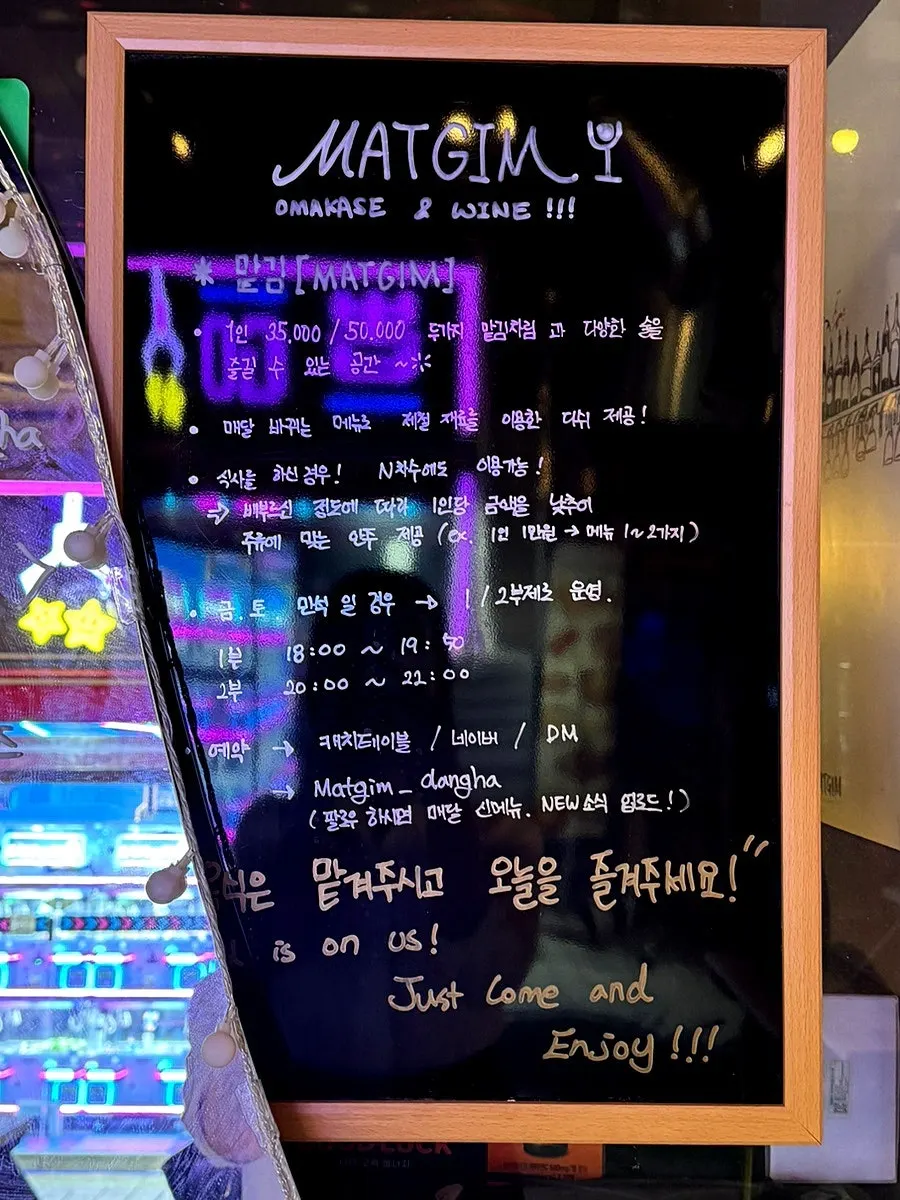 MATGIM
OMAKASE & WINE !!!
* 맡김 [MATGIM]
• 1인 35,000 / 50,000 두가지 맡김차림 과 다양한 술을
즐길 수 있는 공간 ~
• 매달 바뀌는 메뉴로 제철 재료를 이용한 디쉬 제공!
• 식사를 하신 경우! N차수에도 이용가능!
⇒ 배부르신 정도에 따라 1인당 금액을 낮추어
주류에 맞는 안주 제공 (ex. 1인 1만원 → 메뉴 1~2가지)
• 금.토 만석 일 경우 → 1 / 2부제로 운영.
1부 18:00 ~ 19:50
2부 20:00 ~ 22:00
예약 → 캐치테이블 / 네이버 / DM
→ Matgim_dangha
(팔로우 하시면 매달 신메뉴. NEW소식 업로드!)
맡겨주시고 오늘을 즐겨주세요!"
is on us!
Just Come and
Enjoy!!!
ha